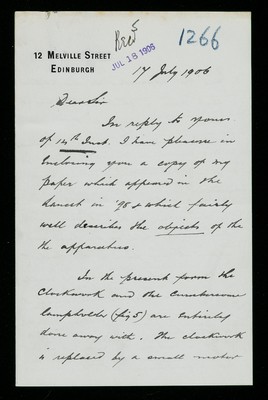 1266
Recd
JUL 18 1906
12 MELVILLE STREET
EDINBURGH
17 July 1906
Dear Sir
In reply to yours
of 14th Inst. I have pleasure in
Enclosing you a copy of my
paper which appeared in the
Lancet in '98 & which fairly
well describes the objects of the
the apparatus.
In the present form the
Clockwork and the cumbersome
lampholder (fig 5) are entirely
done away with. The clockwork
is replaced by a small motor